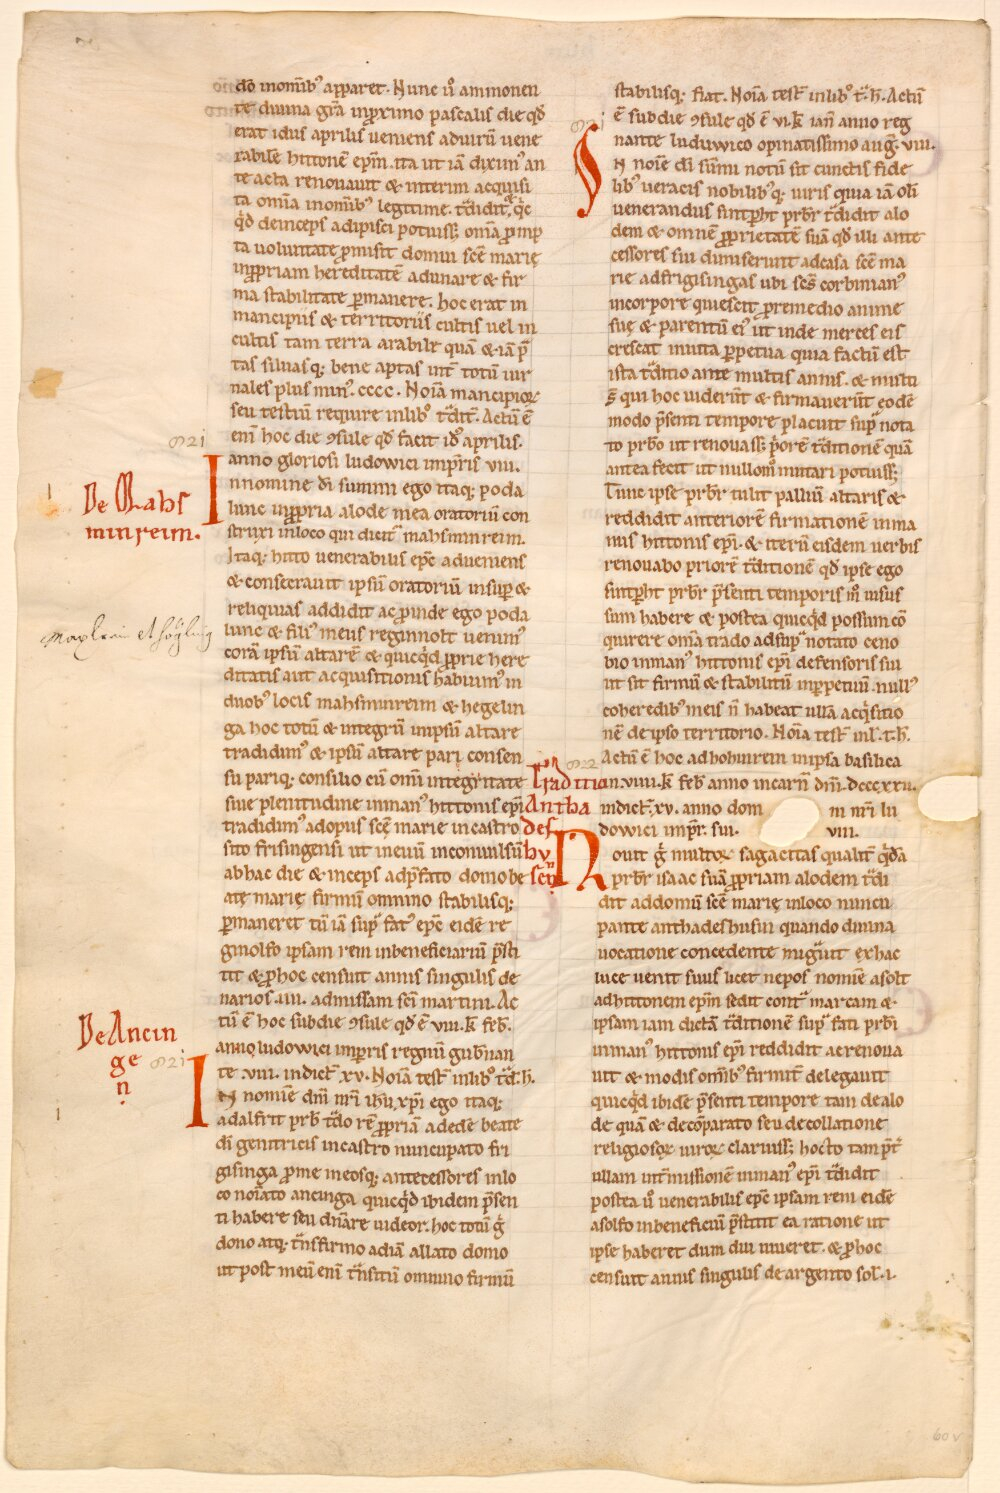 dō inomīb⁹ apparet. Nunc ū ammonen
te diuina gr̄a inproximo pascalis die qd̄
erat idus aprilis ueniens aduirū uene
rabilē hittonē ep̄m. ita ut iā diximus an
te acta renouauit & interim acquisi
ta om̄ia inomīb⁹ legitime. tͣdidit, qc̄
qd̄ deinceps adipisci potuiss; om̄ia ꝓmp
ta uoluntate ꝑmisit domui scē marię
inꝓpriam hereditatē adunare & fir
ma stabilitate ꝑmanere. hoc erat in
mancipiis & territoriis cultis uel in
cultis tam terra arabilē quā & iā p̄
tas siluasq; bene aptas int̄ totū iur
nales plus min⁹. cccc. Noīa mancipioꝝ
seu testiū require inlib⁹ tͣdit̄. Actū ē
eni hoc die ꝯsule qd̄ facit id⁹ aprilis.
anno gloriosi ludowici imp̄ris viii.
021
De Mahs
minreim.
Innomine dī summi ego itaq; poda
lunc inꝓpria alode mea oratoriū con
struxi inloco qui dicit̄ mahsminreim.
Itaq; hitto uenerabilis ep̄c adueniens
& consecrauit ipsū oratoriū insup̄ &
reliquias addidit ac ꝓinde ego poda
lunc & fili⁹ meus reginnolt uenim⁹
Maxlrain et Höglnig
corā ipsū altarē & quicq̄d ꝓprie here
ditatis aut acquisitionis habuim⁹ in
duob⁹ locis mahsminreim & hegelin
ga hoc totū & integrū inipsū altare
tradidim⁹ & ipsū altare pari consen
su pariq; consilio cū om̄i integritate
siue plenitudine inman⁹ hittonis ep̄i
tradidim⁹ adopus scē marie incastro
sito frisingensi ut ineuū inconuulsū
abhac die & inceps adp̄fato domo be
atę marię firmū omnino stabilisq;
ꝑmaneret tū iā sup̄ fat⁹ ep̄c eidē re
ginolfo ipsam rem inbeneficiariū p̄sti
tit & ꝓhoc censuit annis singulis de
narios .iiii. admissam scī martini. Ac
tū ē hoc subdie ꝯsule qd̄ ē viii. k̄ feb̄.
anno ludowici imp̄ris regnū gub̄nan
te viii. indict̄ xv. Noīa test̄ inlib⁹ tͣd. h̄.
De Ancin
ge
n̄
021
In nomīe dn̄i nr̄i ihū xp̄i ego itaq;
adalfrit prb̄ tͣdo rē ꝓpriā adedē beatę
dī genitricis incastro nuncupato fri
gisinga ꝓme meosq; antecessores inlo
co noīato ancinga quicq̄d ibidem p̄sen
ti habere seu dn̄are uideor. hoc totū ḡ
dono atq; tͣnsfirmo adiā allato domo
ut post meū enī tͣnsitū omnino firmū
stabilisq; fiat. Noīa test̄ inlib⁹ tͣ. h̄. Actū
ē subdie ꝯsule qd̄ ē vi. k̄ ian̄ anno reg
nante luduwico opinatissimo auḡ. viii.
021
In noīe dī sūmi notū sit cunctis fide
lib⁹ ueracis nobilib⁹q; uiris quia iā olī
uenerandus sintpht̄ prb̄r tͣdidit alo
dem & omnē ꝓprietatē suā qd̄ illi ante
cessores sui dimiserunt adcasa scē ma
rie adfrigisingas ubi scs̄ corbinian⁹
incorpore quiescit ꝓremedio anime
suę & parentū ei⁹ ut inde merces eis
crescat inuita ꝑpetua quia factū est
ista tͣditio ante multis annis. & multi
s̄ qui hoc uider̄nt & firmauer̄nt eodē
modo p̄senti tempore placuit sup̄ nota
to prb̄o ut renouass; p̄orē tͣditionē quā
antea fecit ut nullom̊ mutari potuiss;
Tunc ipse prb̄r tulit palliū altaris &
reddidit anteriorē firmationē inma
nus hittonis ep̄i. & iterū eisdem uerbis
renouabo priorē tͣditionē qd̄ ipse ego
sintpht̄ prb̄r p̄senti temporis m̊ uisus
sum habere & postea quicq̄d possum cō
quirere om̄ia trado adsup̄ notato ceno
bio inman⁹ hittonis ep̄i defensoris sui
ut sit firmū & stabilitū inꝑpetuū. null⁹
coheredib⁹ meis n̄ habeat ullā acq̄sitio
nē de ipso territorio. Noīa test̄ inl. t. h̄.
Actū ē hoc adhohinrein inipsa basilica
022
Traditio
Antha
des
hv
sen
in. viiii. k̄ feb̄ anno incarn̄ dn̄i. dcccxxii.
indict̄. xv. anno dom ni nr̄i lu
dowici imp̄r. sui. viii.
Nouit ḡ multoꝝ sagacitas qualit̄ q̄dā
prb̄r isaac suā ꝓpriam alodem tͣdi
dit addomū scē marię inloco nuncu
pante anthadeshusun quando diuina
uocatione concedente migͣuit exhac
luce uenit suus licet nepos nomīe asolt
adhittonem ep̄m sedit contͣ marcam &
ipsam iam dictā tͣditionē sup̄ fati prb̄i
inman⁹ hittonis ep̄i reddidit ac renoua
uit & modis om̄ib⁹ firmit̄ delegauit
quicq̄d ibidē p̄senti tempore tam de alo
de quā & decōparato seu de collatione
religiosoꝝ uiroꝝ claruiss; hoc to tam pt̄
ullam int̄missionē inman⁹ ep̄i tͣdidit
postea ū uenerabilis ep̄c ipsam rem eidē
asolfo inbeneficiū p̄stitit ea ratione ut
ipse haberet dum diu uiueret. & ꝓhoc
censuit annis singulis de argento sol̄. i.
60 v